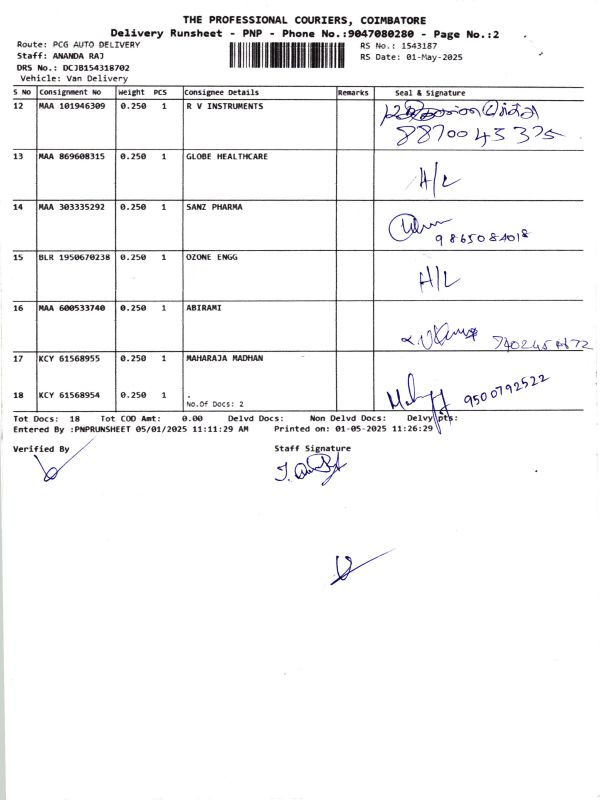 THE PROFESSIONAL COURIERS, COIMBATORE
Delivery Runsheet - PNP - Phone No.:9047080280 - Page No.:2
Route: PCG AUTO DELIVERY
RS No.: 1543187
Staff: ANANDA RAJ
RS Date: 01-May-2025
DRS No.: DCJB154318702
Vehicle: Van Delivery
S No Consignment No Weight PCS Consignee Details Remarks Seal & Signature
12 MAA 101946309 0.250 1 R V INSTRUMENTS
8870043375
13 MAA 869608315 0.250 1 GLOBE HEALTHCARE H/L
14 MAA 303335292 0.250 1 SANZ PHARMA
9865084018
15 BLR 1950670238 0.250 1 OZONE ENGG H/L
16 MAA 600533740 0.250 1 ABIRAMI
17 KCY 61568955 0.250 1 MAHARAJA MADHAN
18 KCY 61568954 0.250 1 . 9500792522
No.Of Docs: 2
Tot Docs: 18 Tot COD Amt: 0.00 Delvd Docs: Non Delvd Docs: Delvy pts:
Entered By :PNPRUNSHEET 05/01/2025 11:11:29 AM Printed on: 01-05-2025 11:26:29
Verified By Staff Signature